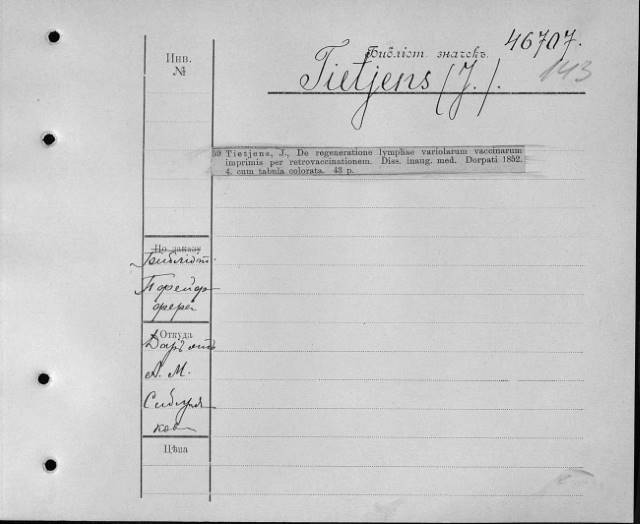 46707.
Инв.
№
Библіот. значекъ.
143
Tietjens (J.).
59 Tietjens, J., De regeneratione lymphae variolarum vaccinarum
imprimis per retrovaccinationem. Diss. inaug. med. Dorpati 1852.
4. cum tabula colorata. 43 p.
По заказу
Библіот.
Пфейф-
фера
Откуда
Даръ отъ
А. М.
Сибиря-
кова
Цѣна